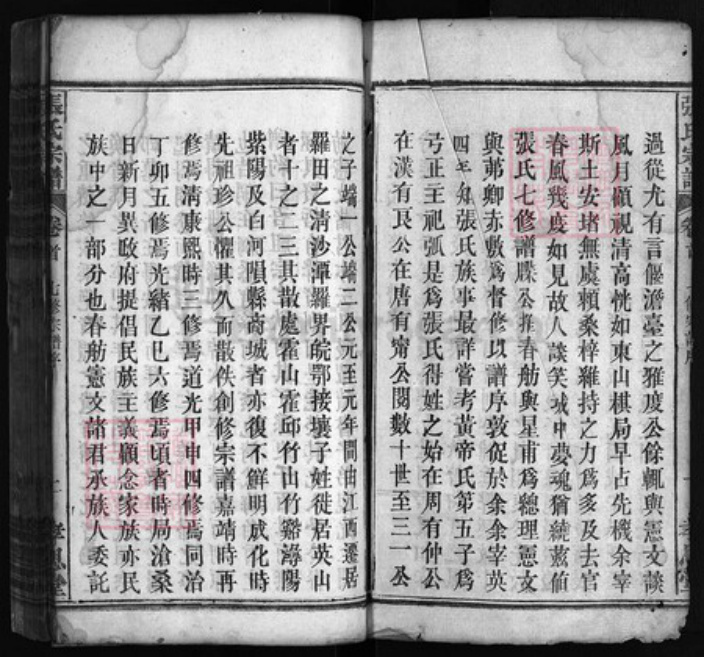 張氏宗譜
過從尤有言偃澹臺之雅度公餘輒與憲文談
風月顧視清高恍如東山棋局早占先機余宰
斯土安堵無虞賴桑梓維持之力爲多及去官
春風幾度如見故人談笑城中夢魂猶繞茲値
張氏七修譜牒公推春舫與星甫爲總理憲文
與苐卿赤敷爲督修以譜序敦促於余余宰英
四年知張氏族事最詳嘗考黃帝氏第五子爲
弓正主祀弧是爲張氏得姓之始在周有仲公
在漢有良公在唐有甯公閱數十世至三一公
之子端一公端二公元至元年間由江西遷居
羅田之清沙潭羅界皖鄂接壤子姓徙居英山
者十之二三其散處霍山霍邱竹山竹谿溮陽
紫陽及白河隕縣商城者亦復不鮮明成化時
先祖珍公懼其久而散佚創修宗譜嘉靖時再
修焉清康熙時三修焉道光甲申四修焉同治
丁卯五修焉光緒乙巳六修焉頃者時局滄桑
日新月異政府提倡民族主義顧念家族亦民
族中之一部分也春舫憲文諸君承族人委託
張氏宗譜
卷首
七修宗譜序
二
孝思堂